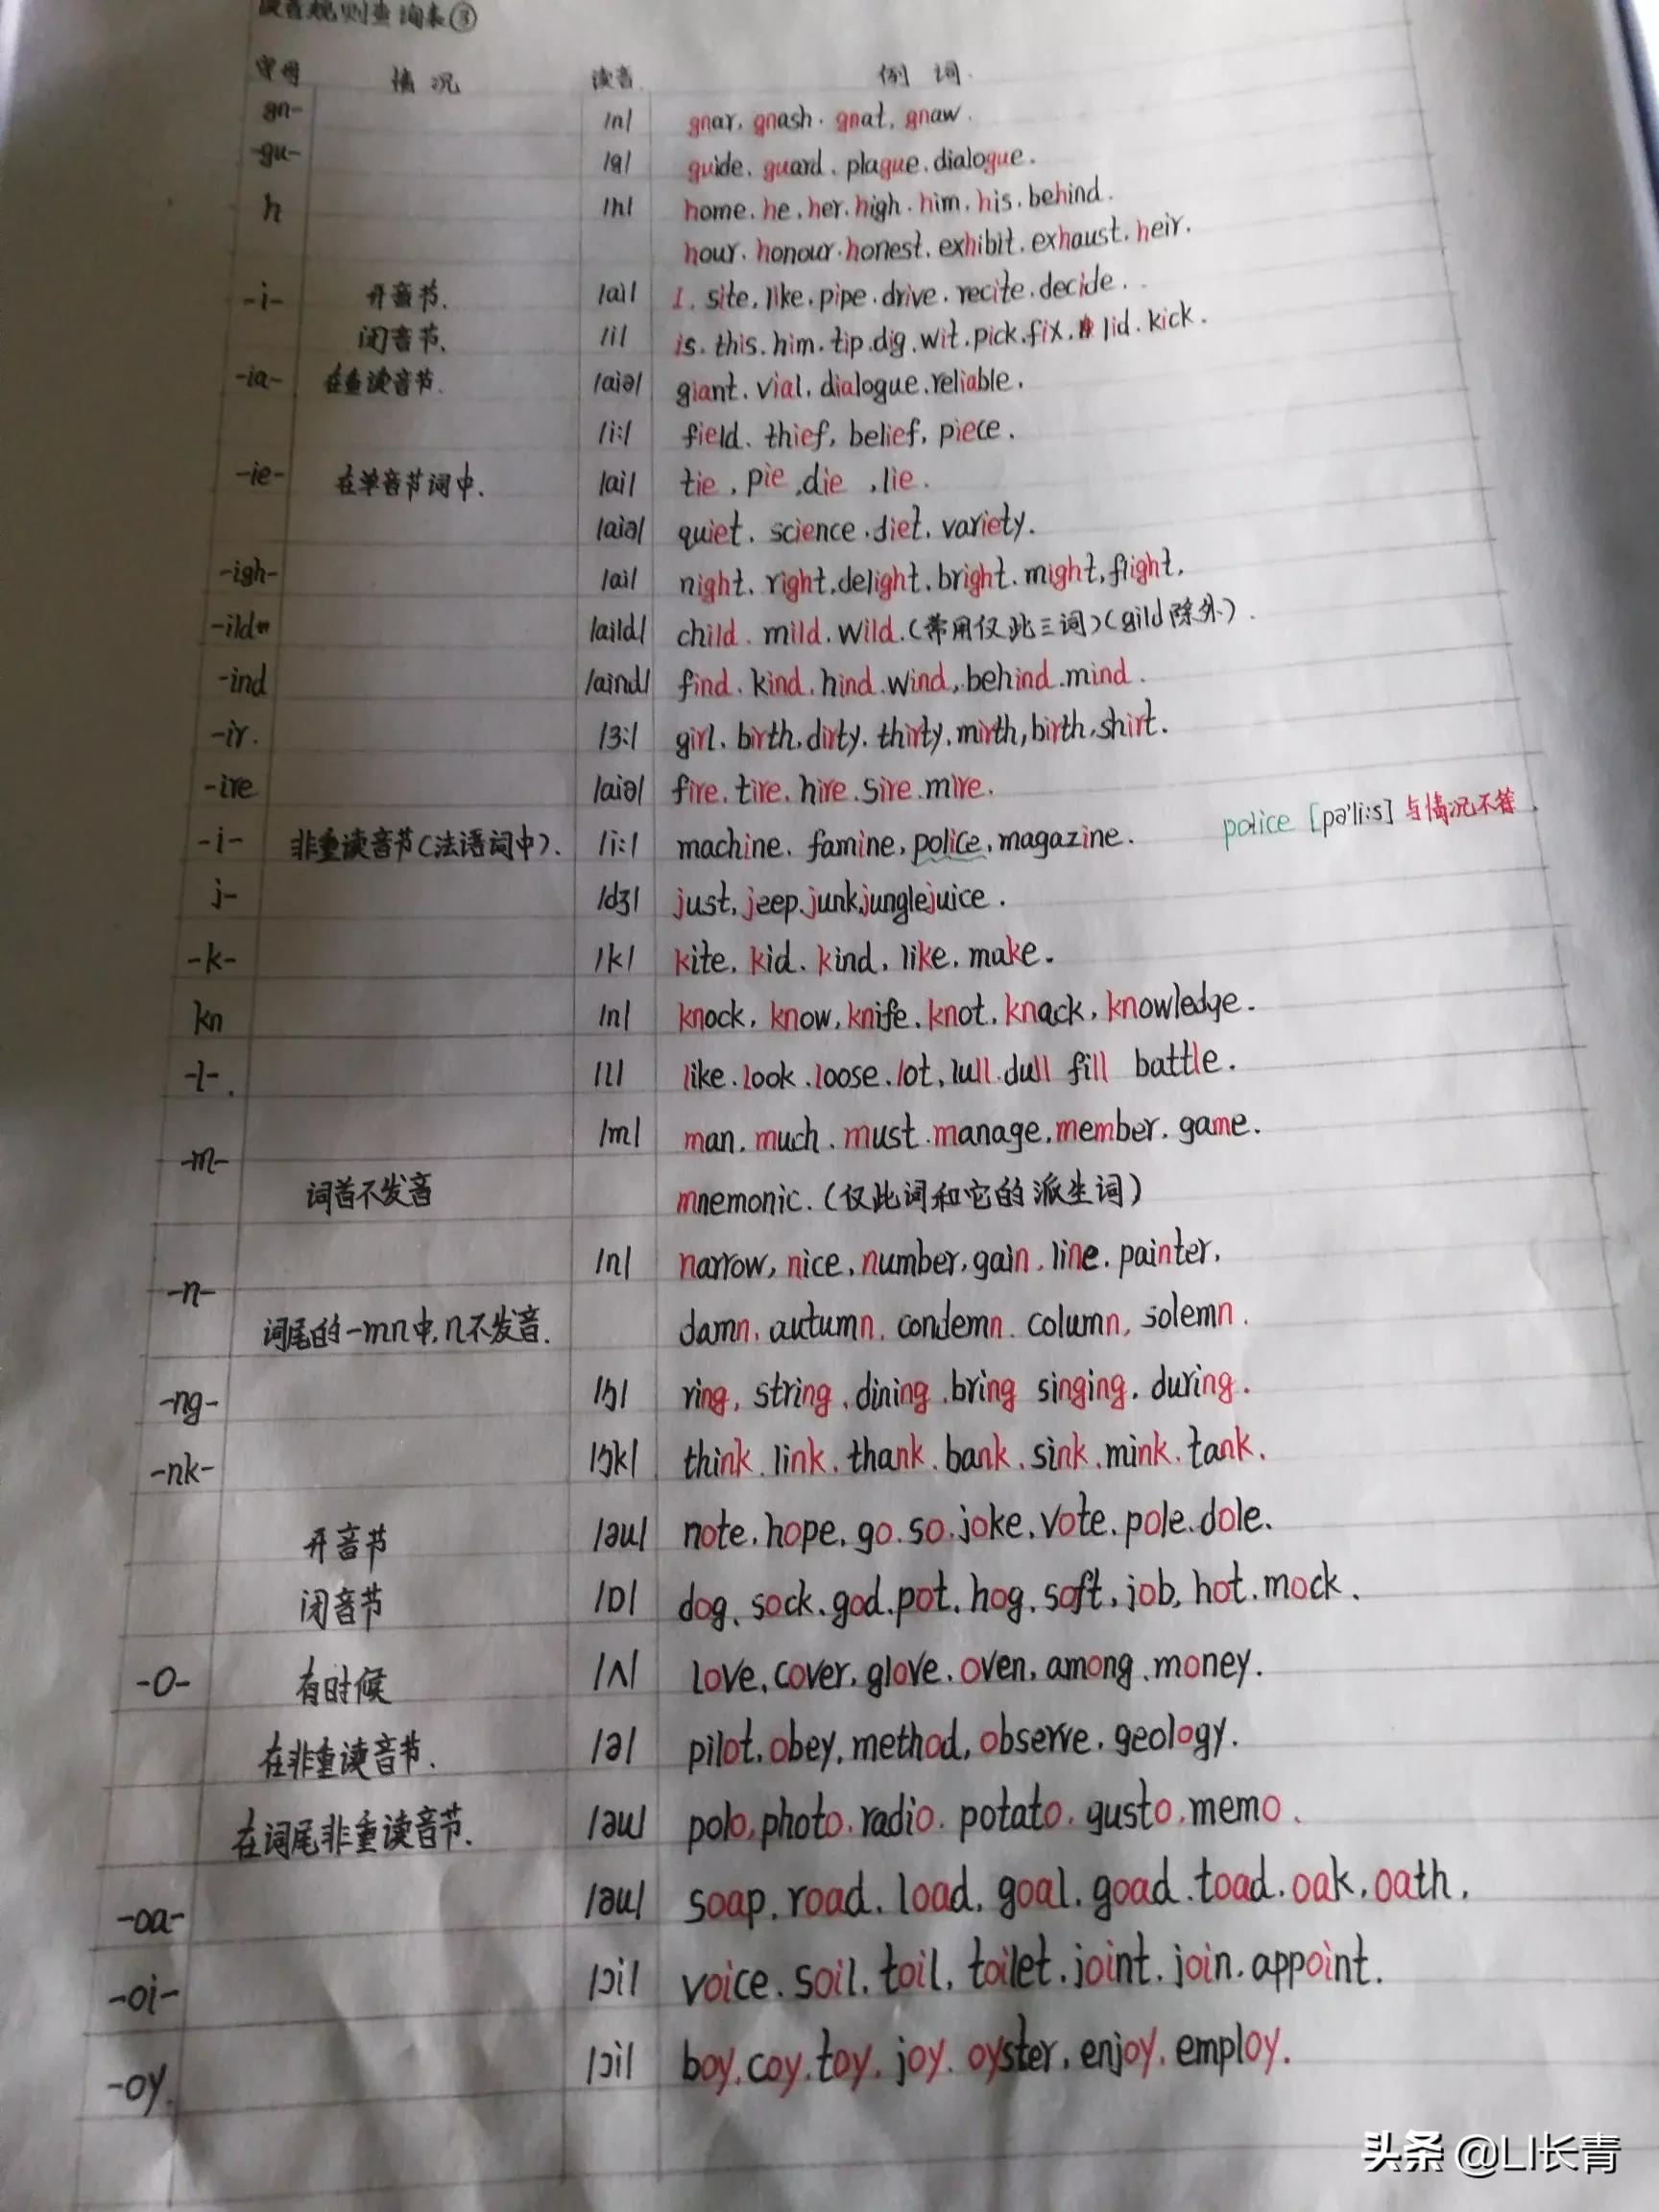 读音规则查询表③
字母 情况 读音 例词
gn- /n/ gnar, gnash. gnat, gnaw.
-gu- /g/ guide, guard, plague, dialogue.
h /h/ home, he, her, high, him, his, behind.
hour, honour, honest, exhibit, exhaust, heir.
-i- 开音节. /ai/ I. site, like, pipe, drive, recite, decide.
闭音节、 /i/ is. this. him. tip. dig. wit. pick. fix. lid. kick.
-ia- 在重读音节. /aiə/ giant. vial. dialogue. reliable.
/i:/ field. thief, belief, piece.
-ie- 在单音节词中. /ai/ tie, pie, die, lie.
/aiə/ quiet. science. diet. variety.
-igh- /ai/ night. right, delight. bright. might, flight.
-ild /aild/ child. mild. wild. (常用仅此三词)(gild除外).
-ind /aind/ find. kind. hind. wind, behind. mind.
-ir. /ɜ:/ girl. birth, dirty. thirty. mirth, birth, shirt.
-ire /aiə/ fire. tire. hire. sire. mire.
-i- 非重读音节(法语词中). /i:/ machine. famine, police, magazine. police [pə'li:s] 与情况不符.
j- /dʒ/ just, jeep. junk jungle juice.
-k- /k/ kite, kid. kind, like, make.
kn /n/ knock, know, knife, knot, knack, knowledge.
-l-. /l/ like. look. loose. lot, lull. dull fill battle.
-m- /m/ man. much. must. manage, member. game.
词首不发音 mnemonic. (仅此词和它的派生词)
-n- /n/ narrow, nice, number, gain, line. painter.
词尾的-mn中, n不发音. damn, autumn, condemn. column, solemn.
-ng- /ŋ/ ring, string, dining, bring singing, during.
-nk- /ŋk/ think. link. thank. bank. sink. mink. tank.
开音节 /əu/ note. hope, go. so. joke. vote. pole. dole.
闭音节 /ɒ/ dog, sock. god. pot. hog. soft, job, hot. mock.
-o- 有时候 /ʌ/ love, cover, glove, oven, among, money.
在非重读音节. /ə/ pilot, obey, method, observe. geology.
在词尾非重读音节. /əu/ polo, photo. radio. potato. gusto. memo.
-oa- /əu/ soap. road. load, goal. goad. toad. oak. oath.
-oi- /ɔi/ voice. soil. toil. toilet. joint. join. appoint.
-oy. /ɔi/ boy. coy. toy. joy. oyster, enjoy, employ.
头条 @LI长青